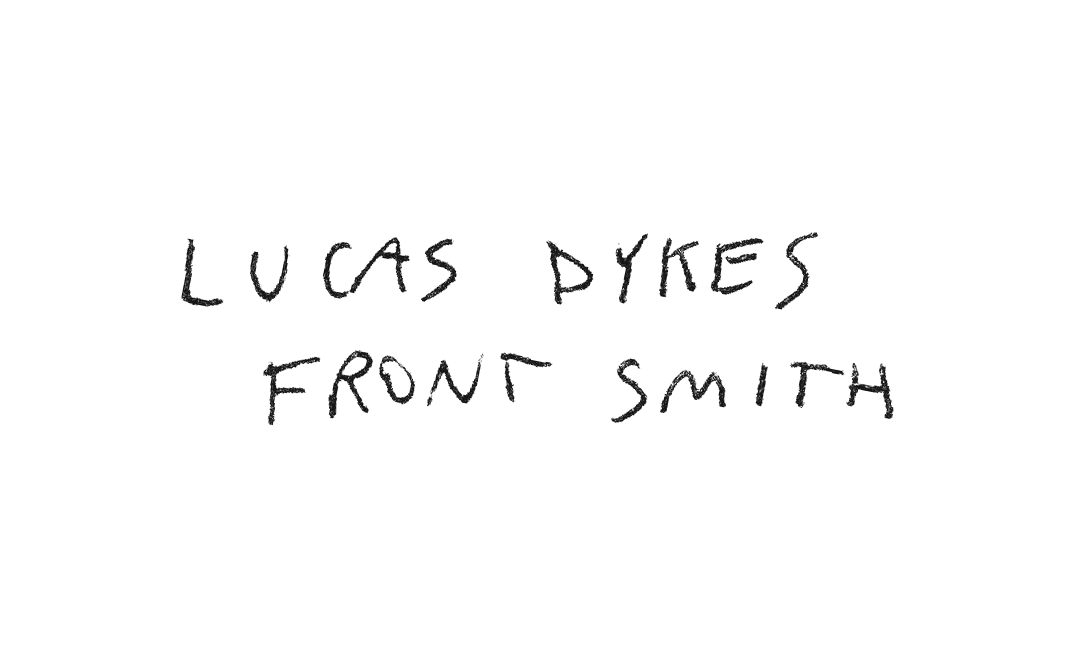 LUCAS DYKES
FRONT SMITH